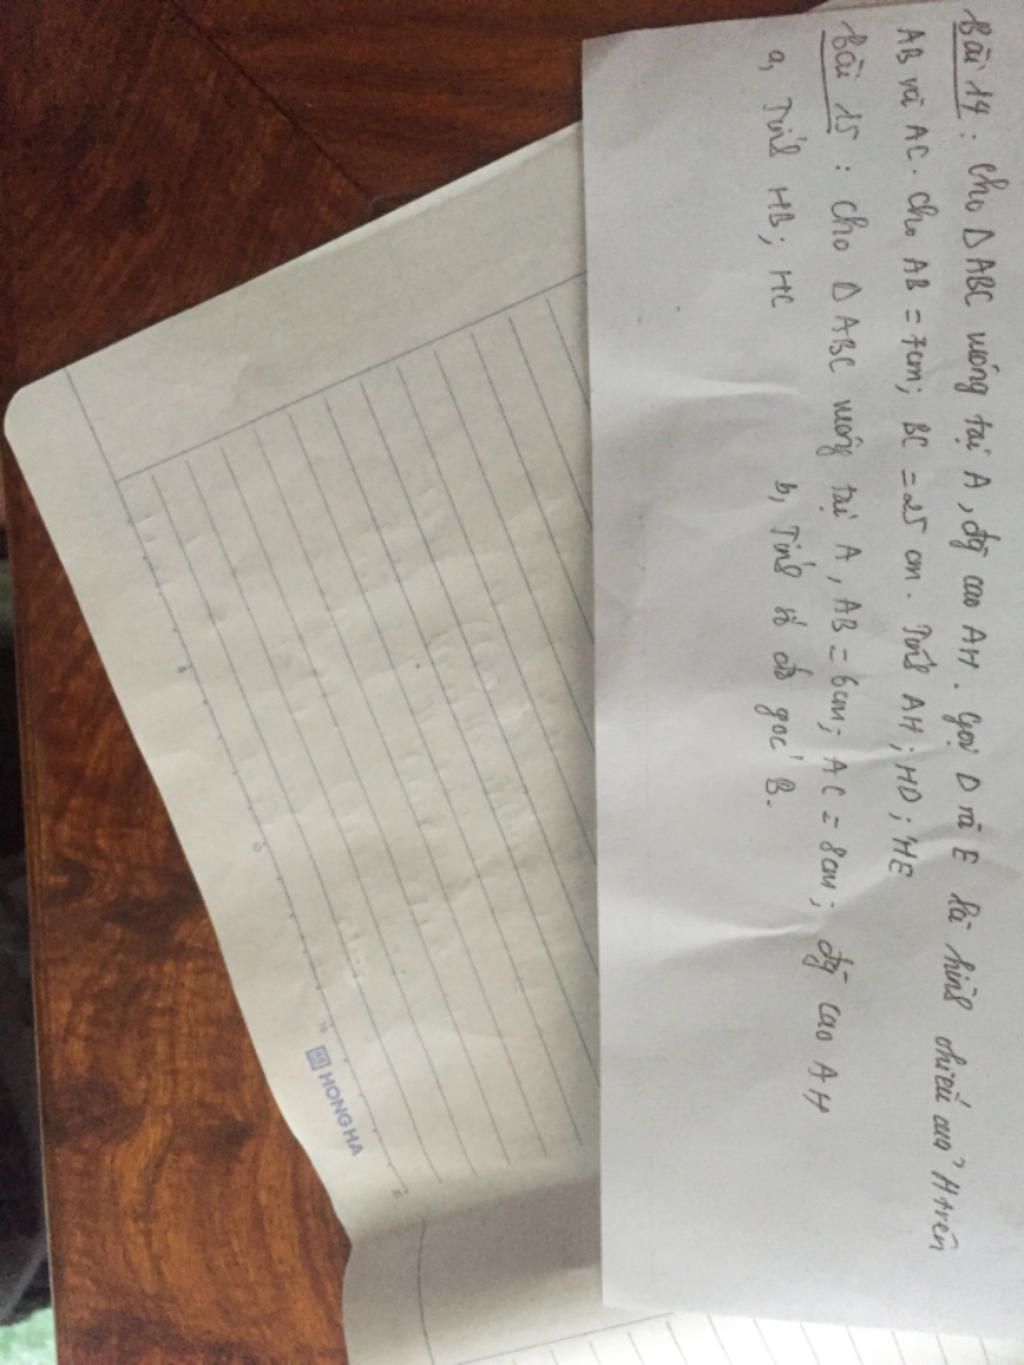 Bài 14: Cho Δ ABC vuông tại A, đg cao AH. Gọi D và E là hình chiếu của H trên
AB và AC. Cho AB = 7cm; BC = 25 cm. Tính AH; HD; HE
Bài 15: Cho Δ ABC vuông tại A, AB = 6cm; AC = 8cm; đg cao AH
a, Tính HB; HC b, Tính số đo góc B.
HONG HA
5
10
15
20